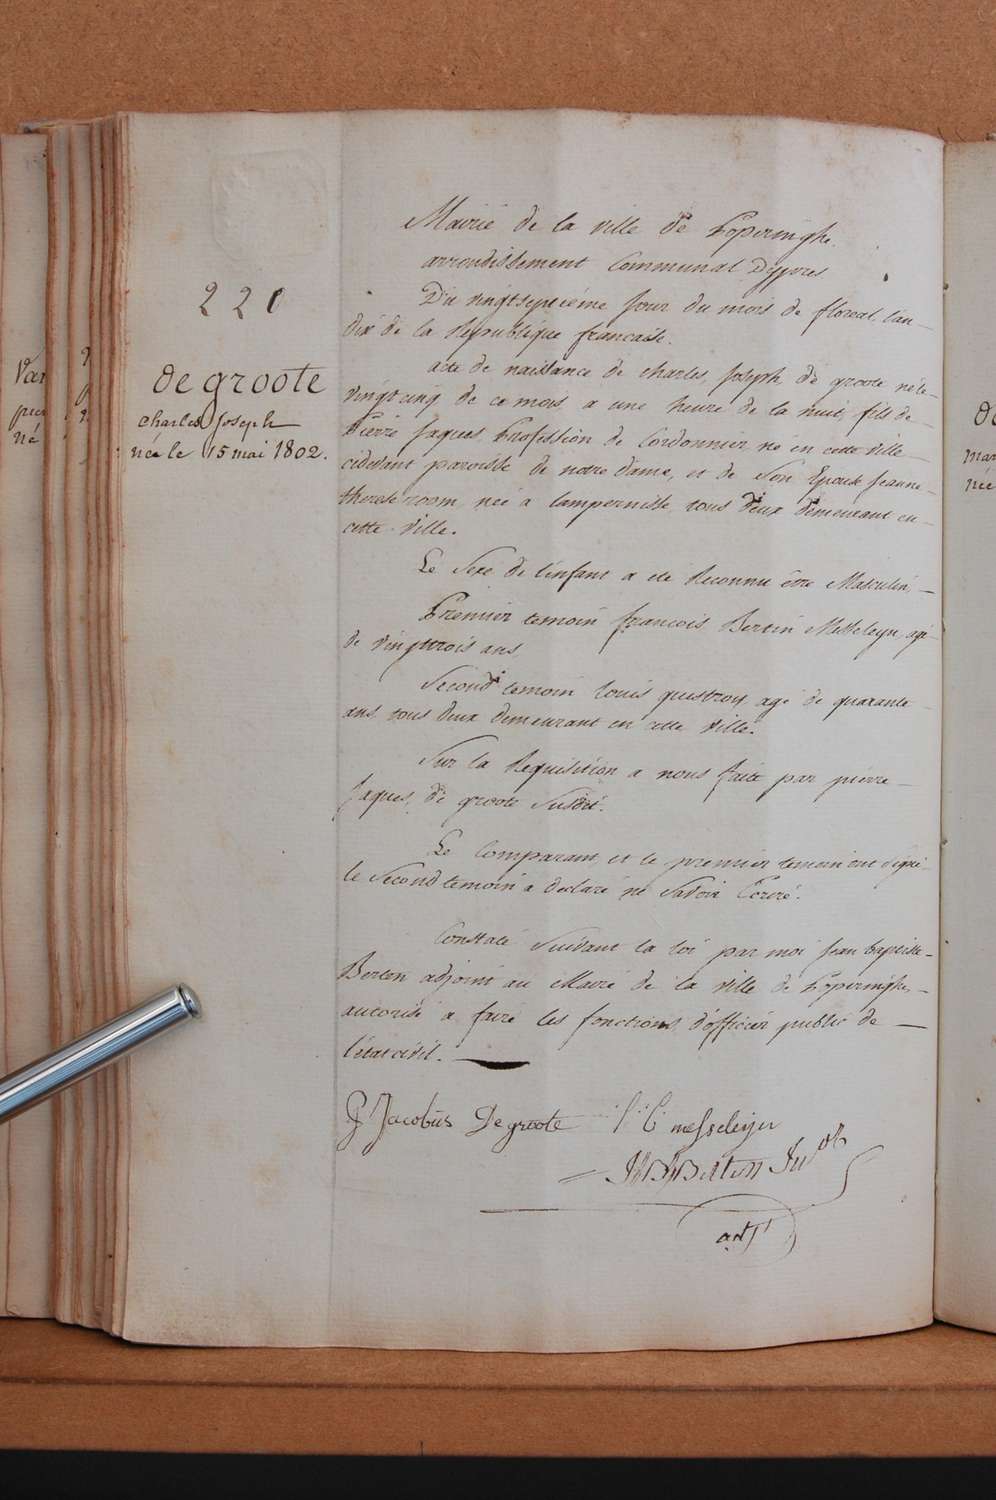 220
de groote
charles Joseph
née le 15 mai 1802.
Mairie de la ville de Poperinghe
arrondissement Communal Dypres
Du vingtseptiéme jour du mois de floreal lan
dix de la Republique francaise.
acte de naissance de charles Joseph de groote né le
vingt cinq de ce mois a une heure de la nuit, fils de
Pierre Jaques, Profession de Cordonnier né en cette ville
cidevant paroisse de notre dame, et de Son Epouse Jeanne
therese room, née a lampernisse tous deux demeurant en
cette ville.
Le Sexe de l'enfant a eté Reconnu être Masculin,
Premier temoin francois Bertin Messeleyn, agé
de vingttrois ans
Second temoin louis questroy agé de quarante
ans tous deux demeurant en cette ville.
Sur la Requisition a nous faite par pierre
Jaques, de groote Susdit.
Le Comparant et le premier temoin ont signé
le Second temoin a declaré ne Savoir Ecrire.
Constaté Suivant la loi par moi Jean baptiste
Berten adjoint au Maire de la ville de Poperinghe
autorisé a faire les fonctions d'officier public de
l'état civil.
P Jacobus De groote messeleyn
Berten
adjt
Van
né
née